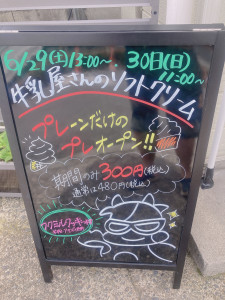 5/29(土)13:00〜. 30日(日)
11:00〜
牛乳屋さんのソフトクリーム
プレーンだけの
プレオープン!!
期間のみ300円(税込)
通常は480円(税込)